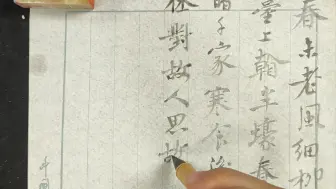 春未老風細柳
臺上看半壕春
暗千家寒食後
休對故人思故